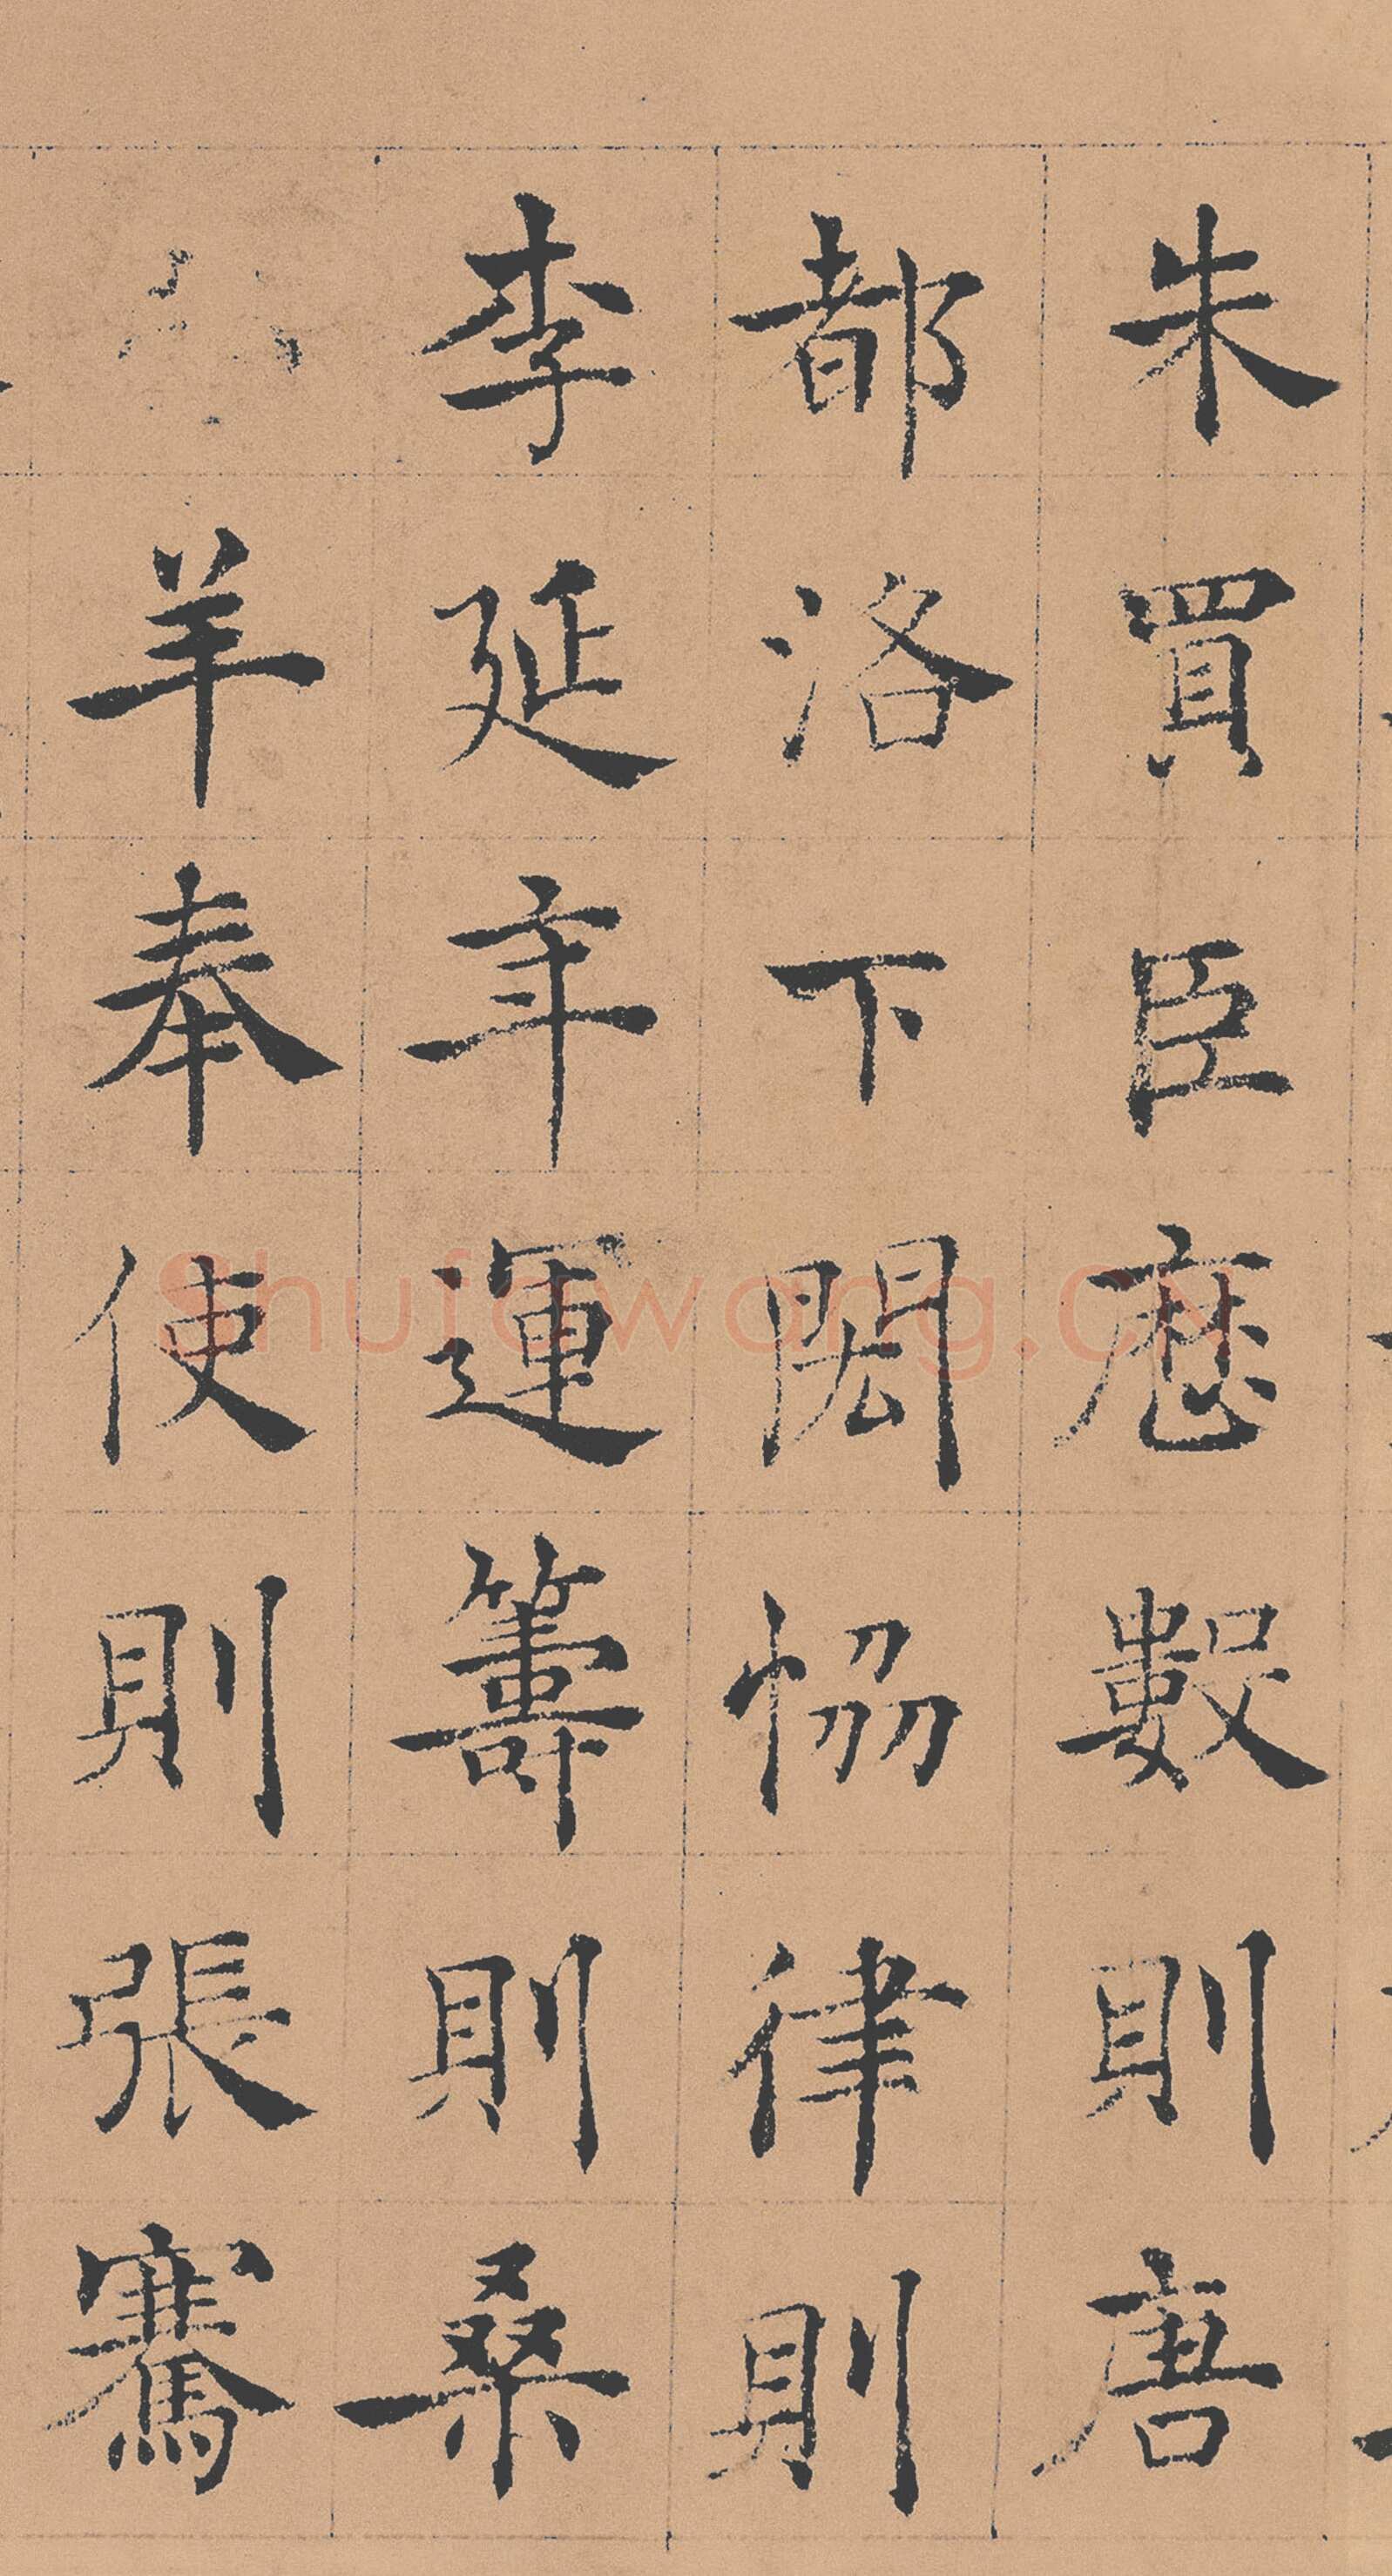 朱買臣歷數則唐
都洛下閎恊律則
李延年運籌則桑
羊奉使則張騫
Shufawang.cn